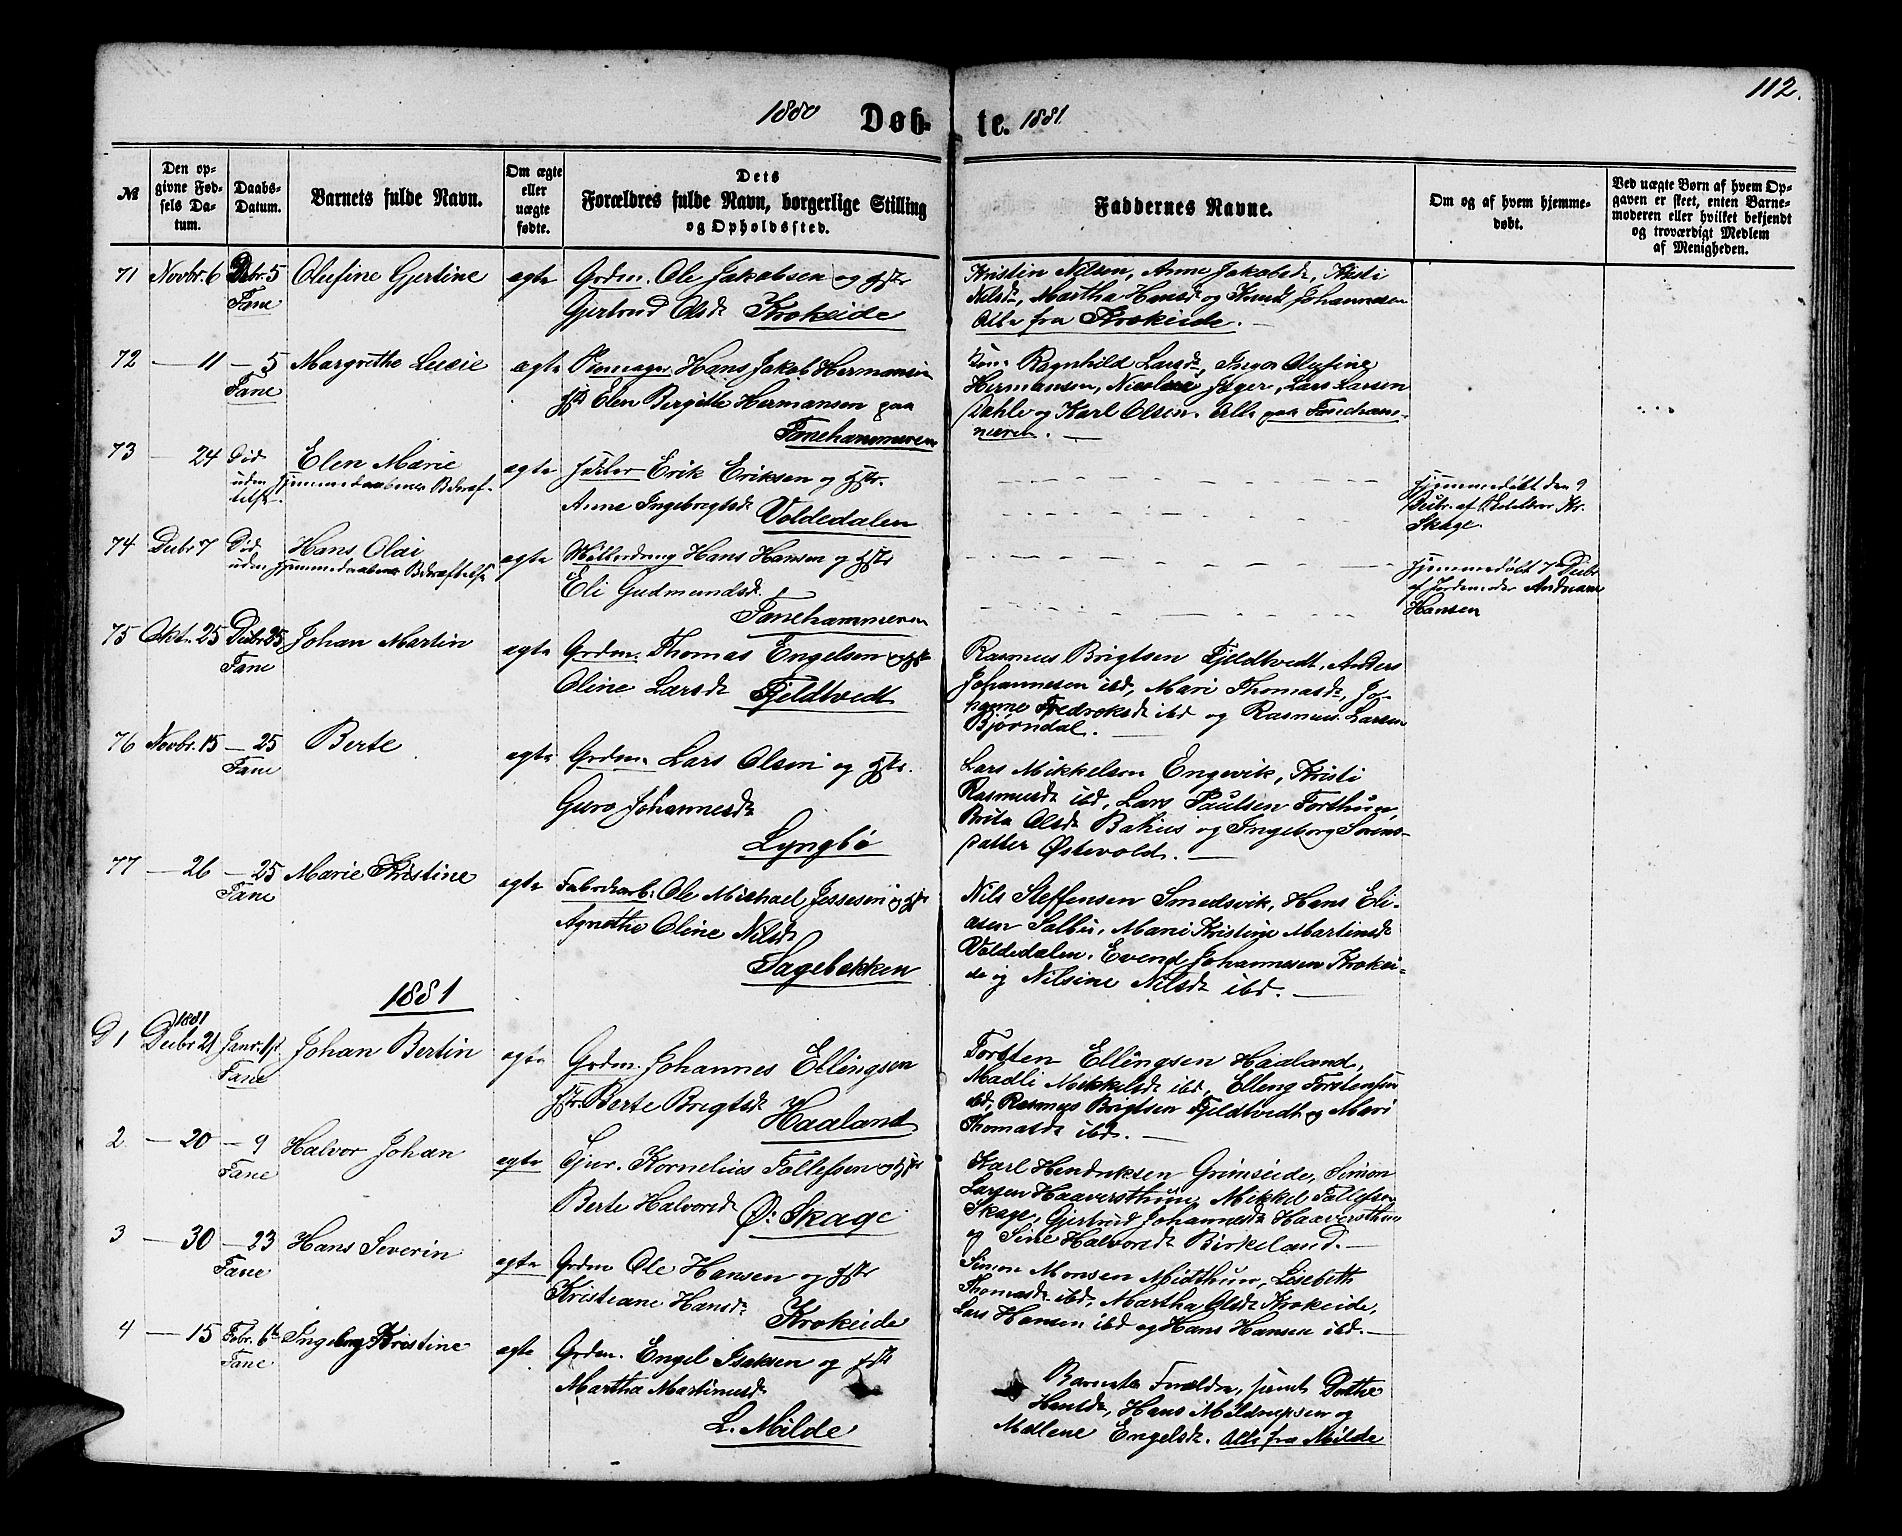 112.
1880 Døb- te. 1881
№
Den opgivne Fødsels Datum.
Daabs-Datum.
Barnets fulde Navn.
Om ægte eller uægte fødte.
Dets Forældres fulde Navn, borgerlige Stilling og Opholdssted.
Faddernes Navne.
Om og af hvem hjemmedøbt.
Ved uægte Børn af hvem Opgaven er skeet, enten Barnemoderen eller hvilket bekjendt og troværdigt Medlem af Menigheden.
71 Novbr. 6 Debr. 5 Olufine Gjertine ægte Grdm. Ole Jakobsen og Hstr
Fane Gjertrud Olsdr Krokeide
Kristin Nilsen, Anne Jakobsdr, Kristi
Nilsdr, Martha Hansdr og Knud Johannesen
Alle fra Krokeide.
72 — 11 — 5 Margrethe Lucie ægte Hans Jakob Hermansen
Fane Hstr Elen Bergitte Hermansen paa
Fanehammeren
Ragnhild Larsdr, Inga Olufine
Hermansen, Nicoline Jæger, Lars Larsen
Dahle og Karl Olsen. Alle paa Fanehammeren.
73 — 24 Død Elen Marie ægte Erik Eriksen og Hstr.
uden Hjemmedaabens Bekræftelse
Anne Ingebrigtsdr Voldedalen
Hjemmedøbt den 9
Debr. af Kr.
Skage.
74 Debr 7 Død Hans Olai ægte Møllerdreng Hans Hansen og Hstr
uden Hjemmedaabens Bekræftelse
Eli Gudmundsdr.
Fanehammeren
Hjemmedøbt 7de Debr
af Jordemoder
Hansen
75 Oktr. 25 Debr 25 Johan Martin ægte Grdm. Thomas Engelsen og Hstr
Fane Oline Larsdr Fjeldtvedt
Rasmus Brigtsen Fjeldtvedt, Anders
Johannesen ibd, Mari Thomasdr, Johanne
Fredriksdr ibd og Rasmus Larsen
Bjørndal.
76 Novbr. 15 — 25 Berte ægte Grdm. Lars Olsen og Hstr.
Fane Guro Johannesdr
Lyngbø
Lars Mikkelsen Engevik, Kristi
Rasmusdr ibd, Lars Paulsen Forthun,
Brita Olsdr Bahus og Ingeborg Sørensdatter
Østevold.
77 — 26 — 25 Marie Kristine ægte Fabrikarb. Ole Michael Jessesen og Hstr
Fane Agnethe Oline Nilsdr
Sagebakken
Nils Steffensen Smedsvik, Hans Eliasen
Salbu, Mari Kristine Martinsdr
Voldedalen, Evend Johannesen Krokeide
og Nilsine Nilsdr ibd.
1881
1 1881 Debr 21 Janr. 1ste Johan Bertin ægte Grdm. Johannes Ellingsen
Fane Hstr. Berte Brigtsdr
Haaland
Torsten Ellingsen Haaland,
Madli Mikkelsdr ibd, Elling Torstensen
ibd, Rasmus Brigtsen Fjeldtvedt og Mari
Thomasdr ibd.
2 — 20 — 9 Halvor Johan ægte Kornelius Tollefsen og Hstr
Fane Berte Halvorsdr Ø: Skage
Karl Hendriksen Grimseide, Simon
Larsen Haaversthun, Mikkel Tollefsen
Skage, Gjertrud Johannesdr Haaversthun
og Sine Halvorsdr Birkeland.
3 — 30 — 23 Hans Severin ægte Grdm Ole Hansen og Hstr
Fane Kristiane Hansdr
Krokeide
Simon Monsen Midthun, Lisebeth
Thomasdr ibd, Martha Olsdr Krokeide,
Lars Hansen ibd og Hans Hansen ibd.
4 — 15 Febr. 6te Ingeborg Kristine ægte Grdm. Engel Isaksen og Hstr
Fane Martha Martinusdr
L. Milde
Barnets Forældre, samt Dorthe
Hansdr, Hans og
Malene Engelsdr. Alle fra Milde